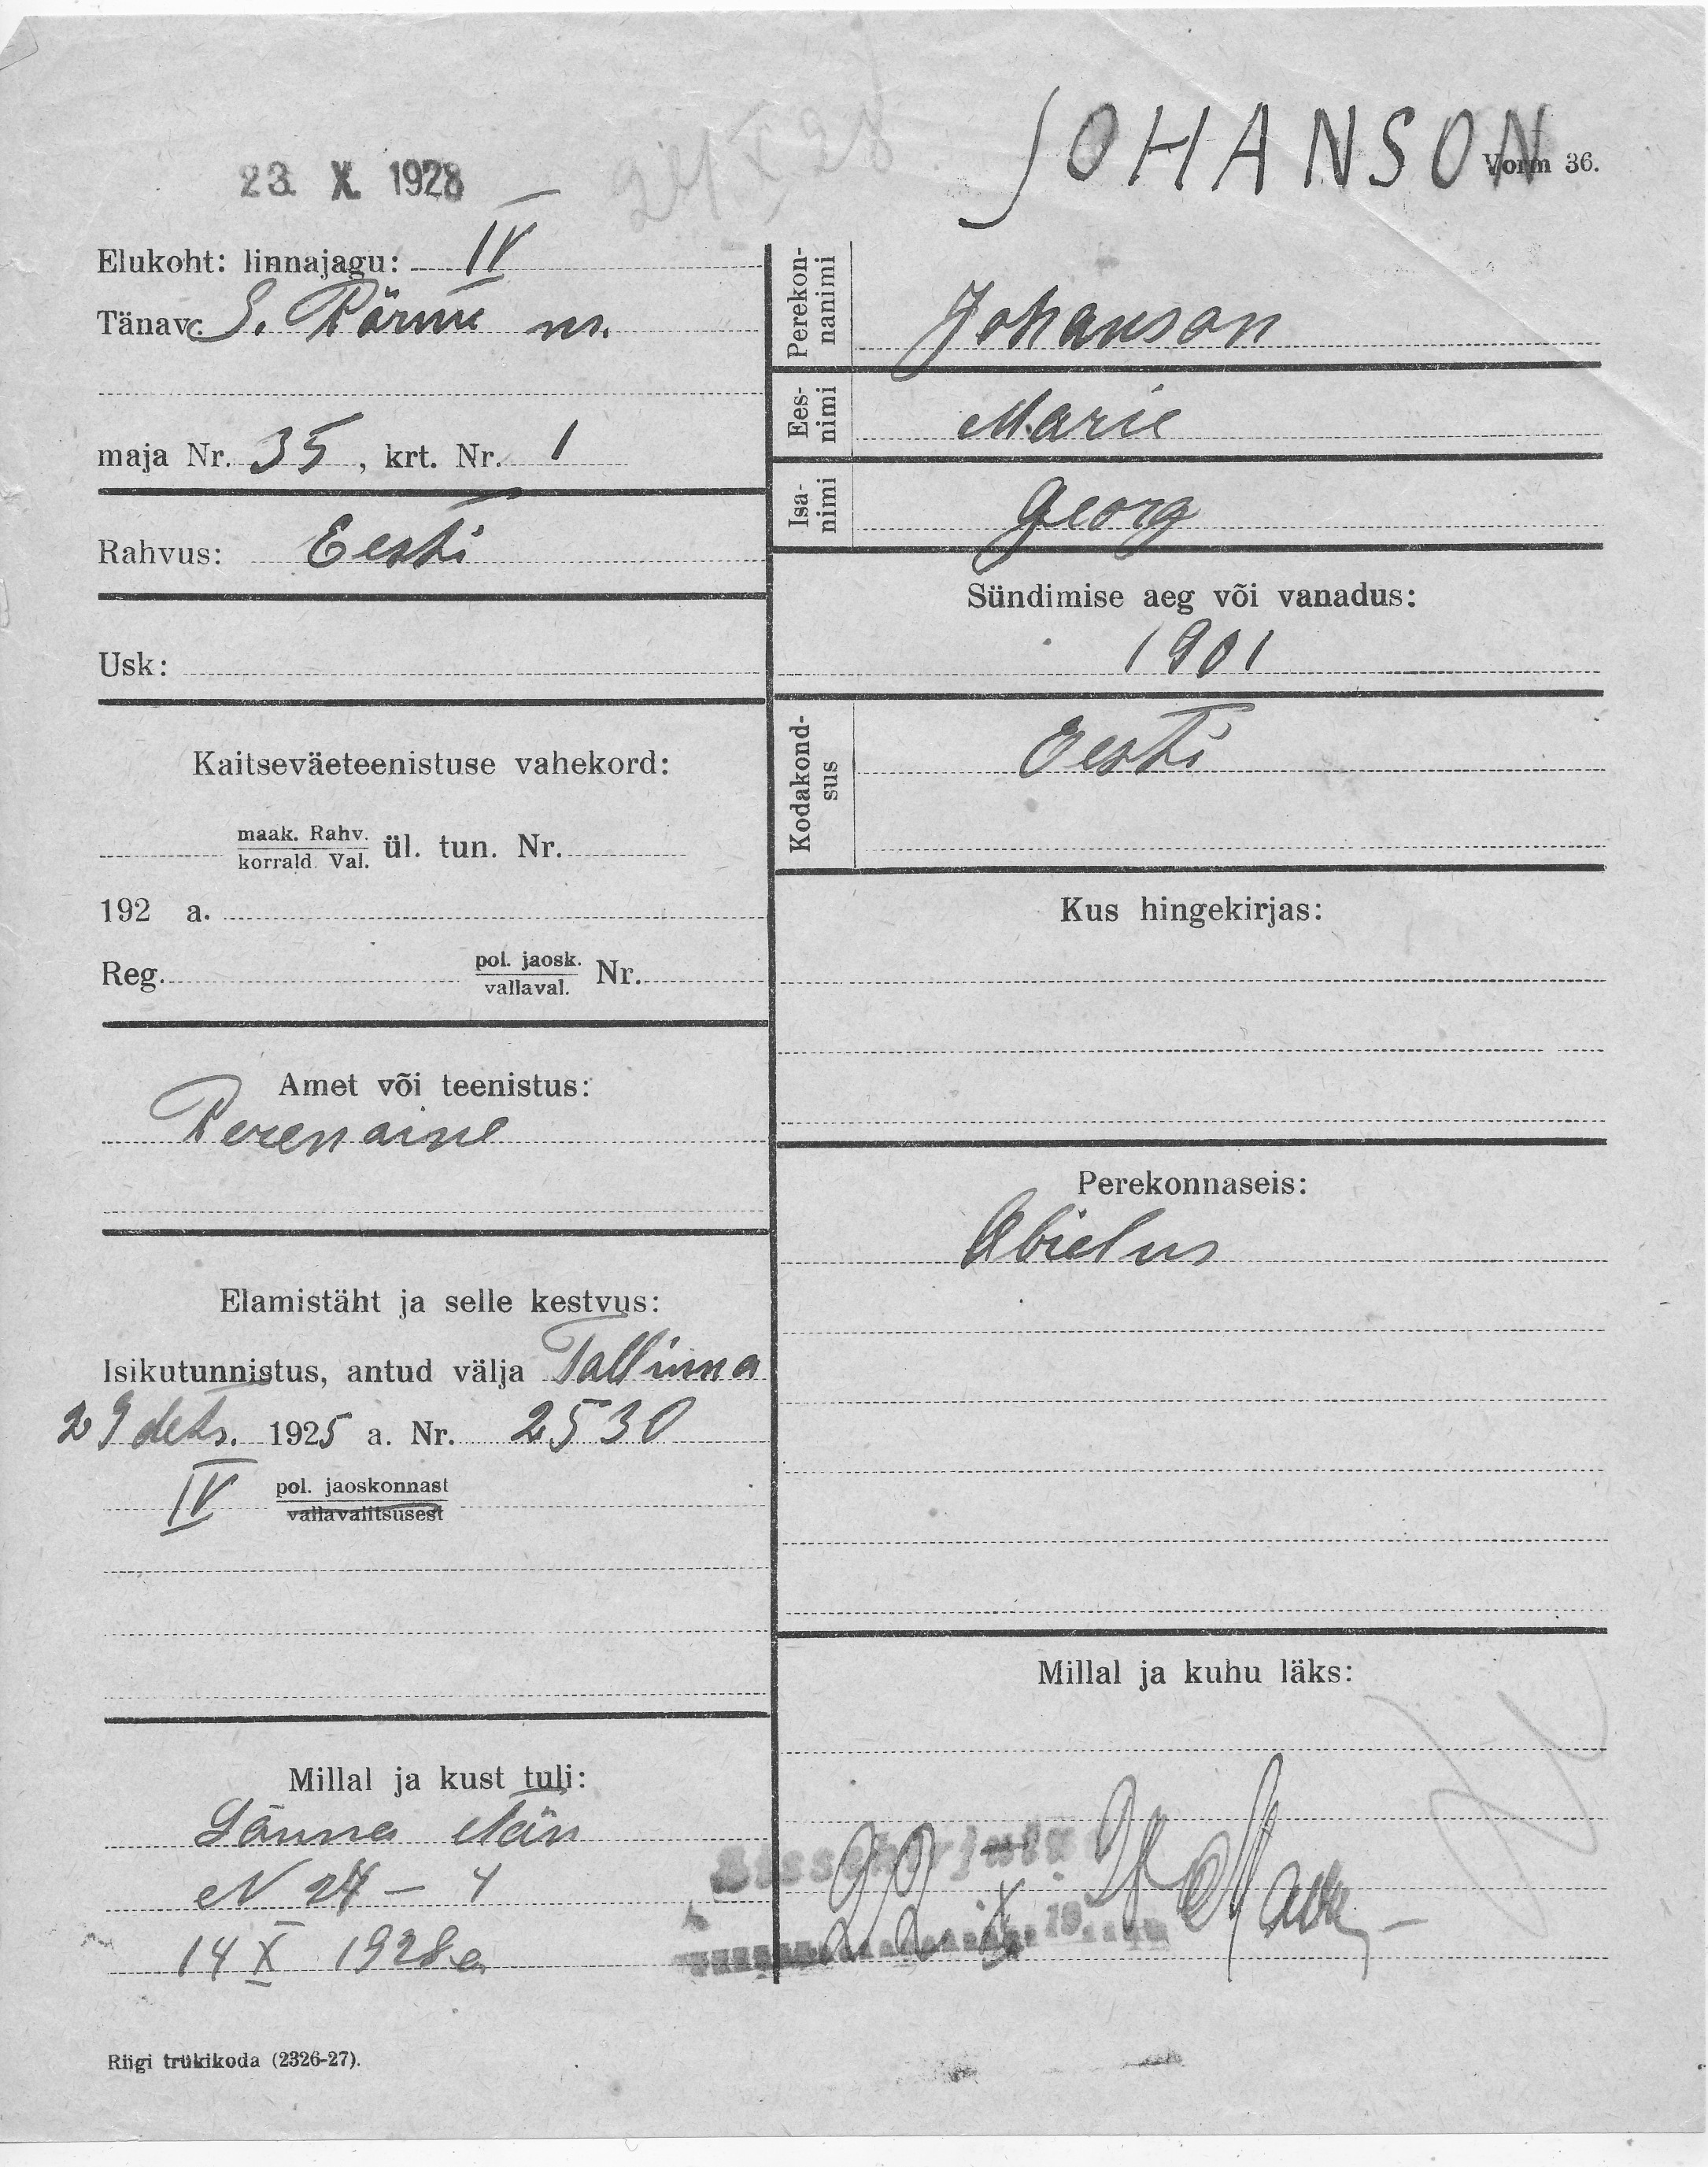 JOHANSON
Vorm 36.
23. X. 1928
24 X 28
Elukoht: linnajagu: IV
Tänav: S. Pärnu m.
maja Nr. 35, krt. Nr. 1
Rahvus: Eesti
Usk:
Kaitseväeteenistuse vahekord:
maak. Rahv.
korrald. Val.
ül. tun. Nr.
192 a.
Reg. pol. jaosk. Nr.
vallaval.
Amet või teenistus:
Perenaine
Elamistäht ja selle kestvus:
Isikutunnistus, antud välja Tallinna
29 dets. 1925 a. Nr. 2530
IV pol. jaoskonnast
vallavalitsusest
Millal ja kust tuli:
Länna tän
N 27 - 4
14 X 1928 a
Riigi trükikoda (2326-27).
Perekon-
nanimi
Johanson
Ees-
nimi
Marie
Isa-
nimi
Georg
Sündimise aeg või vanadus:
1901
Kodakond-
sus
Eesti
Kus hingekirjas:
Perekonnaseis:
Abielus
Millal ja kuhu läks:
Sissekirjutatud
22 X 19